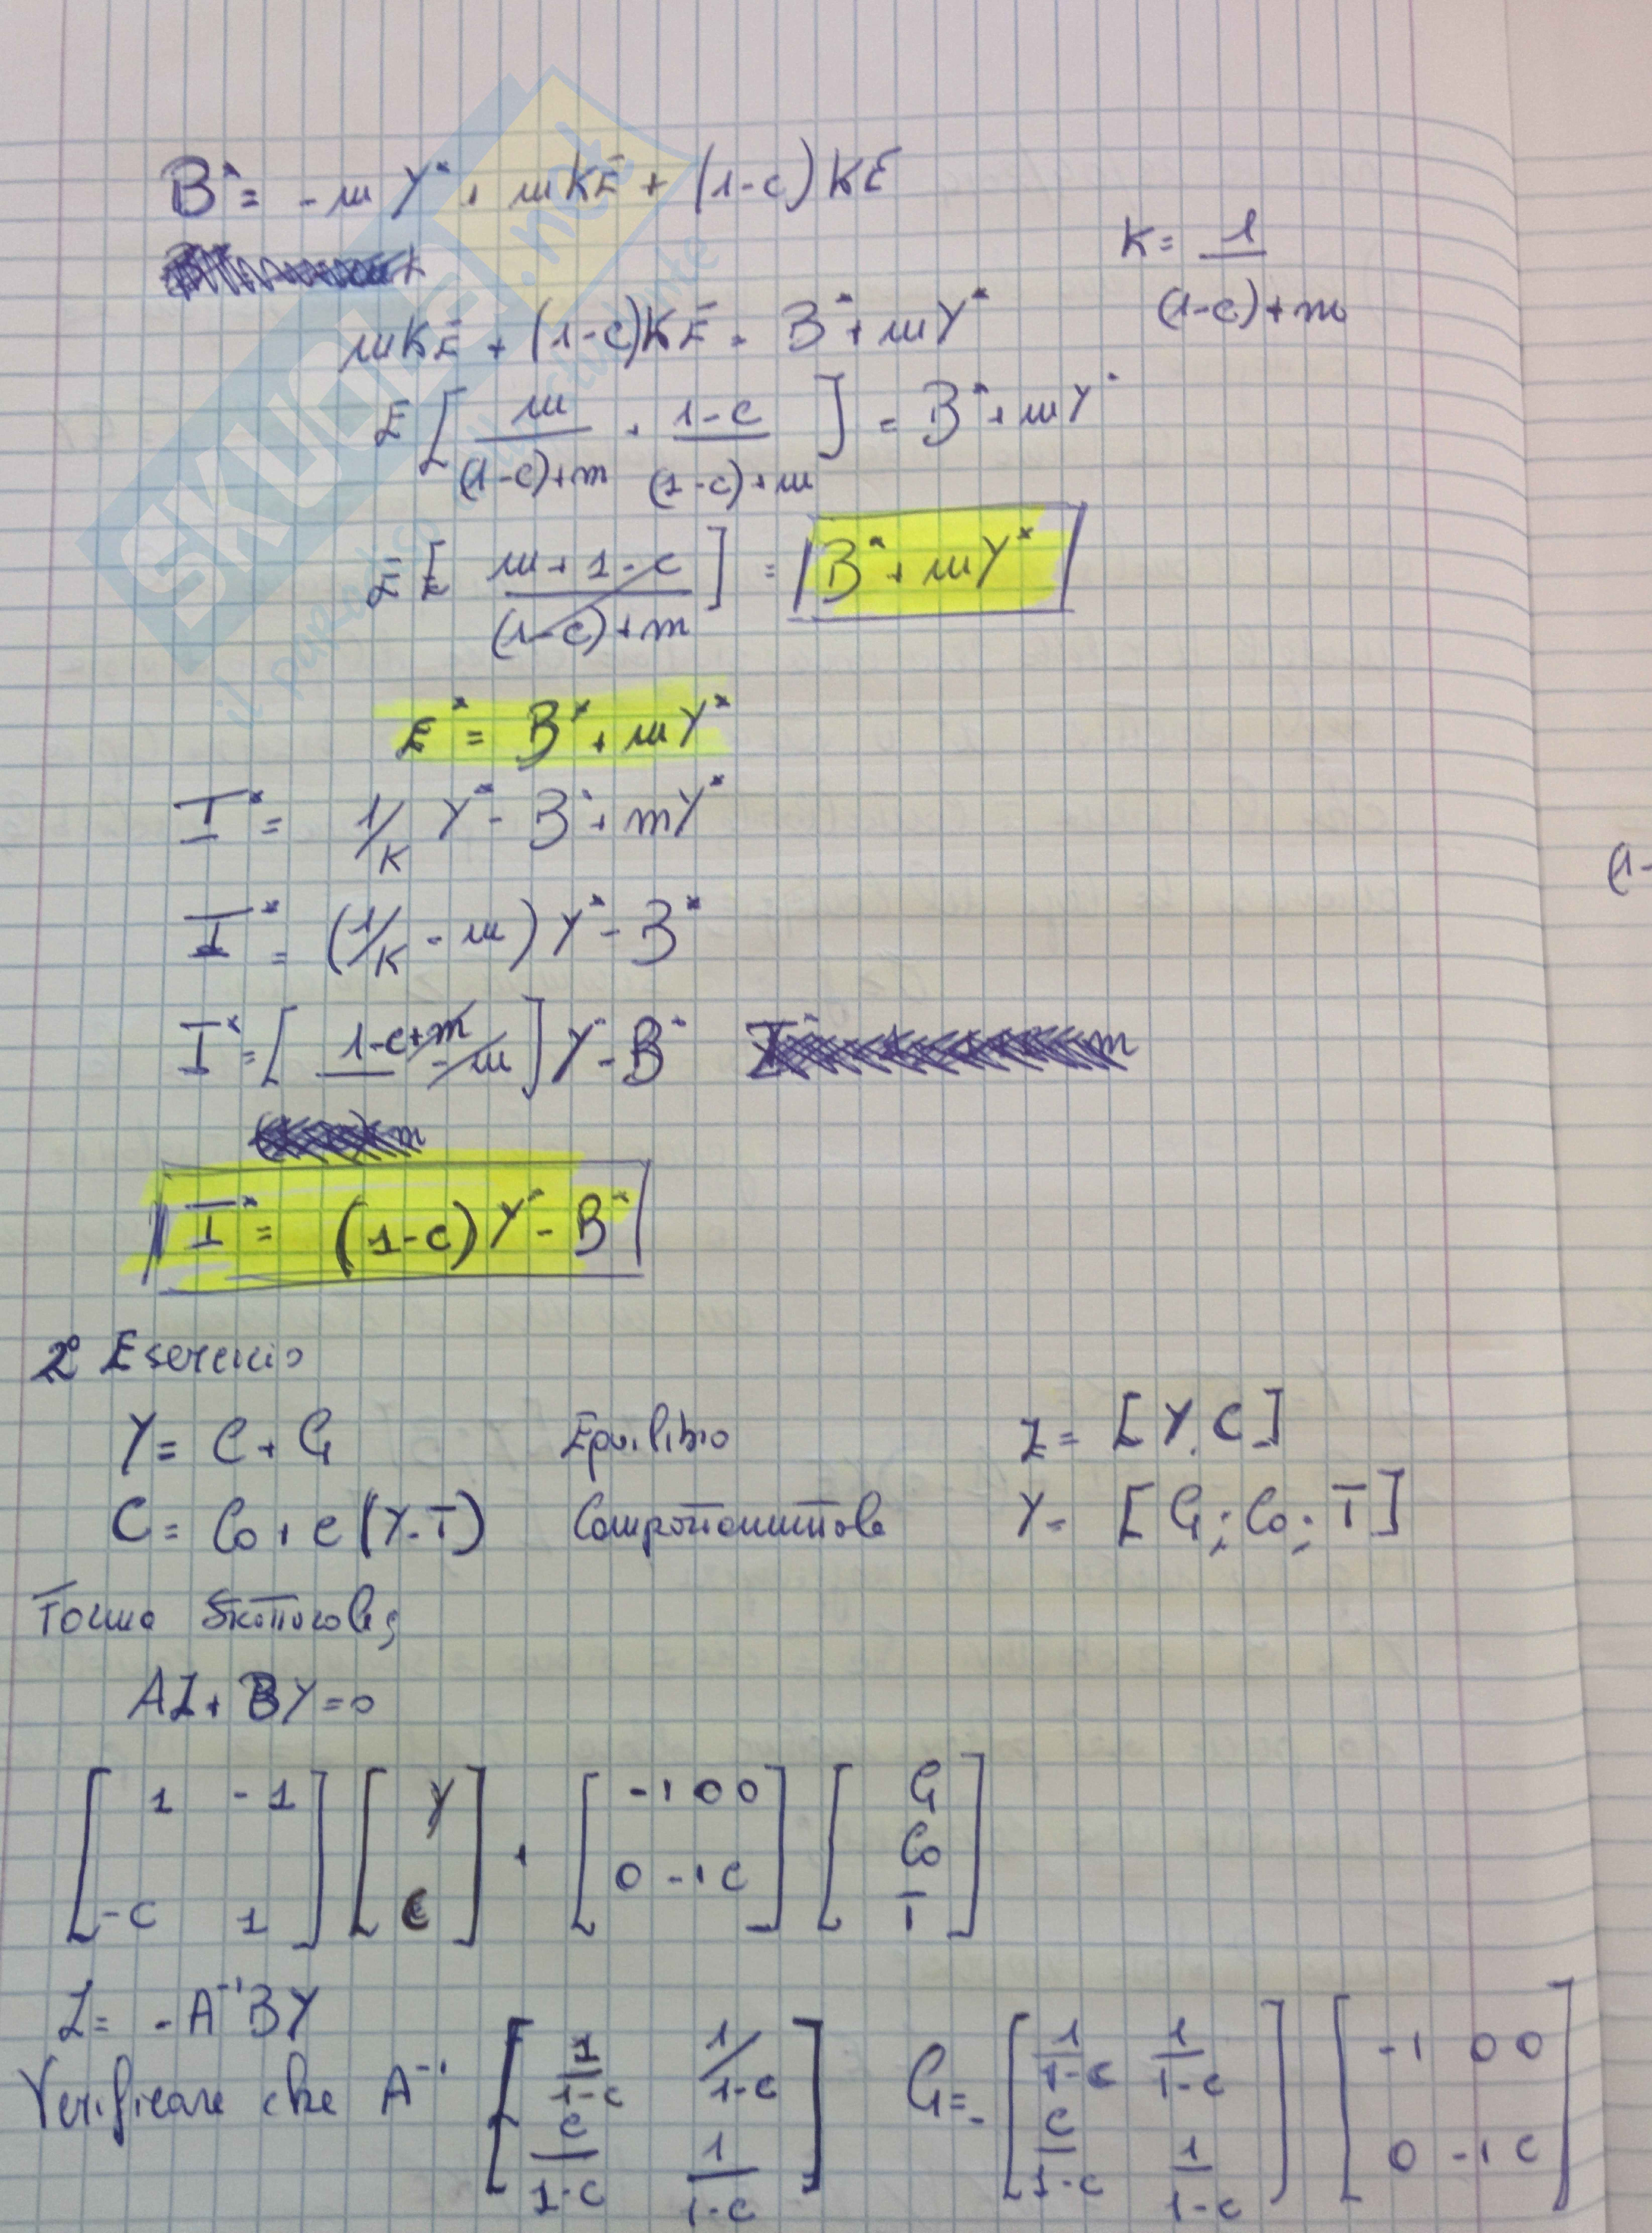 B* = -mY* + mKĒ + (1-c)KĒ
K = 1/((1-c)+m)
mKĒ + (1-c)KĒ = B* + mY*
Ē [ m/((1-c)+m) + (1-c)/((1-c)+m) ] = B* + mY*
Ē [ (m+1-c)/((1-c)+m) ] = B* + mY*
E* = B* + mY*
I* = 1/K Y* - B* + mY*
(1-
I* = (1/K - m) Y* - B*
I* = [ 1-c+m - m ] Y* - B*
I* = (1-c) Y* - B*
2° Esercizio
Y = C + G Equilibrio Z = [Y, C]
C = Co + c(Y-T) Comportamentale Y = [G; Co; T]
Forma Strutturale;
AZ + BY = 0
[1 -1; -c 1] [Y; C] + [-1 0 0; 0 -1 c] [G; Co; T]
Z = -A⁻¹BY
Verificare che A⁻¹ [1/(1-c) 1/(1-c); c/(1-c) 1/(1-c)] G = - [1/(1-c) 1/(1-c); c/(1-c) 1/(1-c)] [-1 0 0; 0 -1 c]
SKUOLA.net
il paradiso dello studente